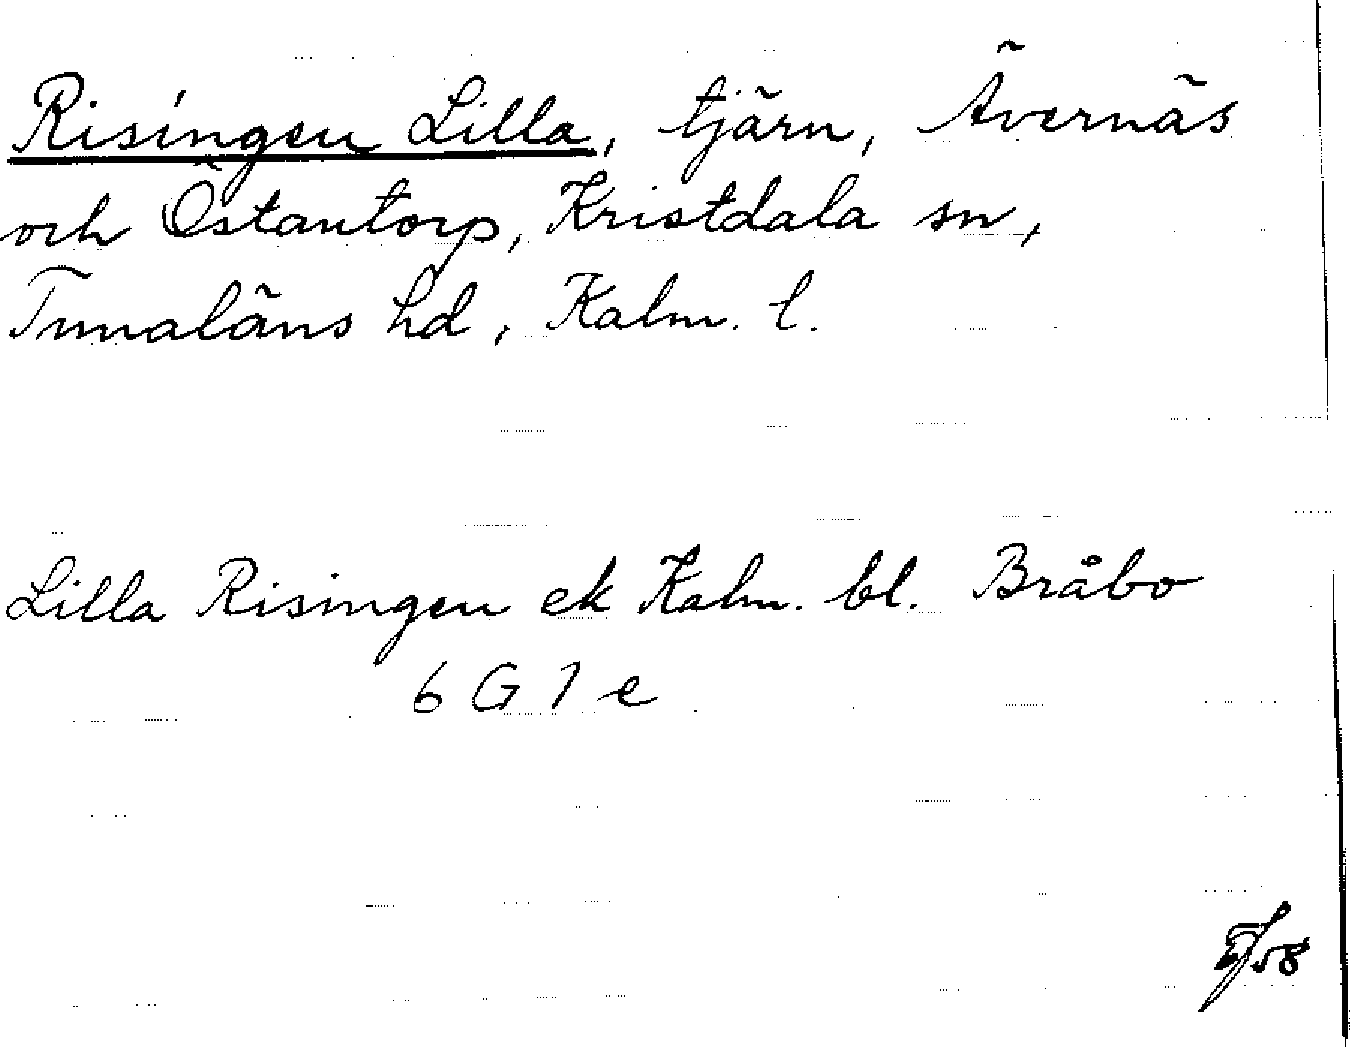 Risingen Lilla, tjärn, Ävernäs
och Östantorp, Kristdala sn,
Tunaläns hd, Kalm. l.
Lilla Risingen ek Kalm. bl. Bråbo
6 G 1 e